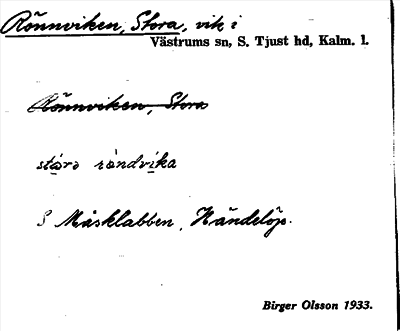 Rönnviken, Stora, vik i
Västrums sn, S. Tjust hd, Kalm. l.
Rönnviken, Stora
storə röndvika
S Måsklabben, Händelöp.
Birger Olsson 1933.